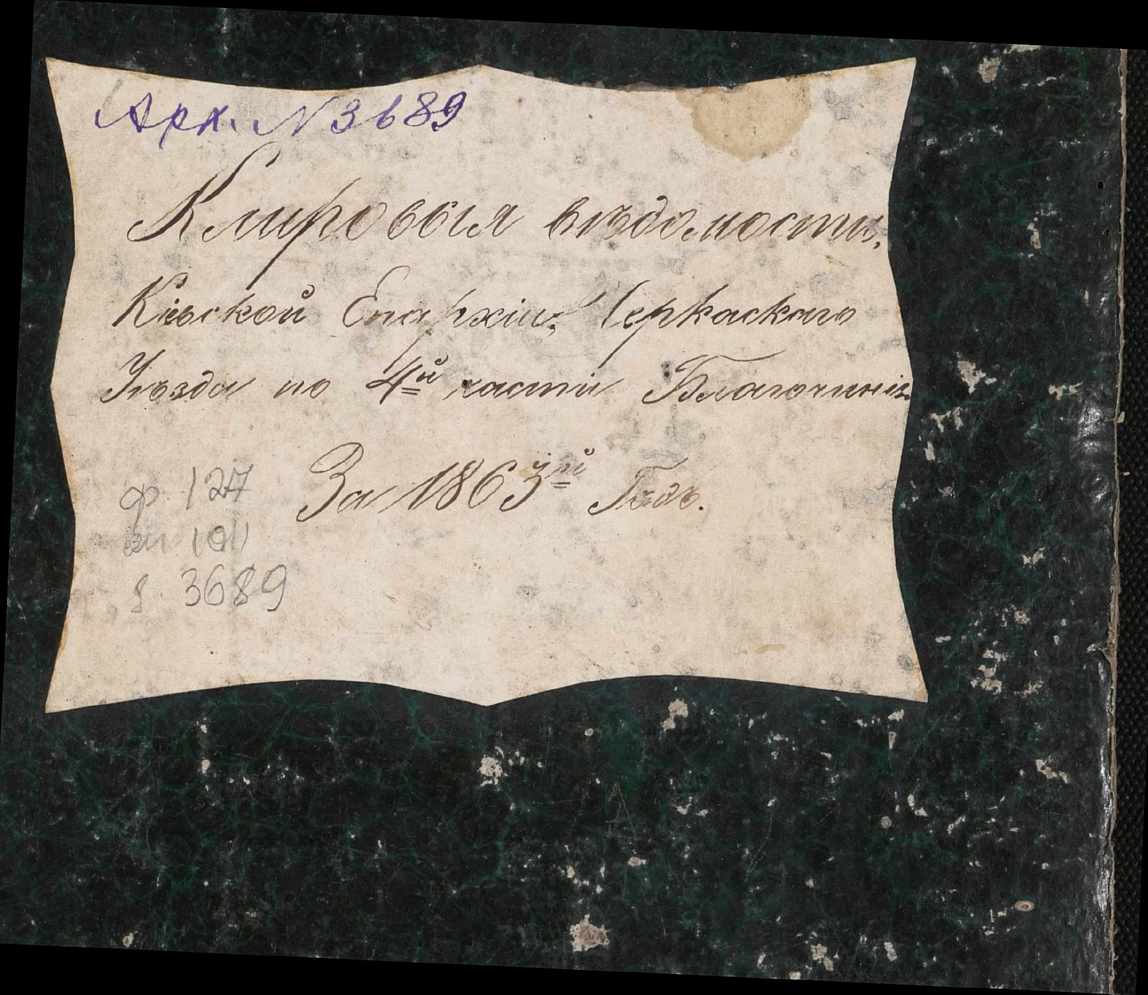 Арх. N 3689
Клировыя вѣдомости,
Кіевской Епархіи, Черкаскаго
Уѣзда по 4й части Благочинія
За 1863й Годъ.
ф. 127
оп 1011
3689